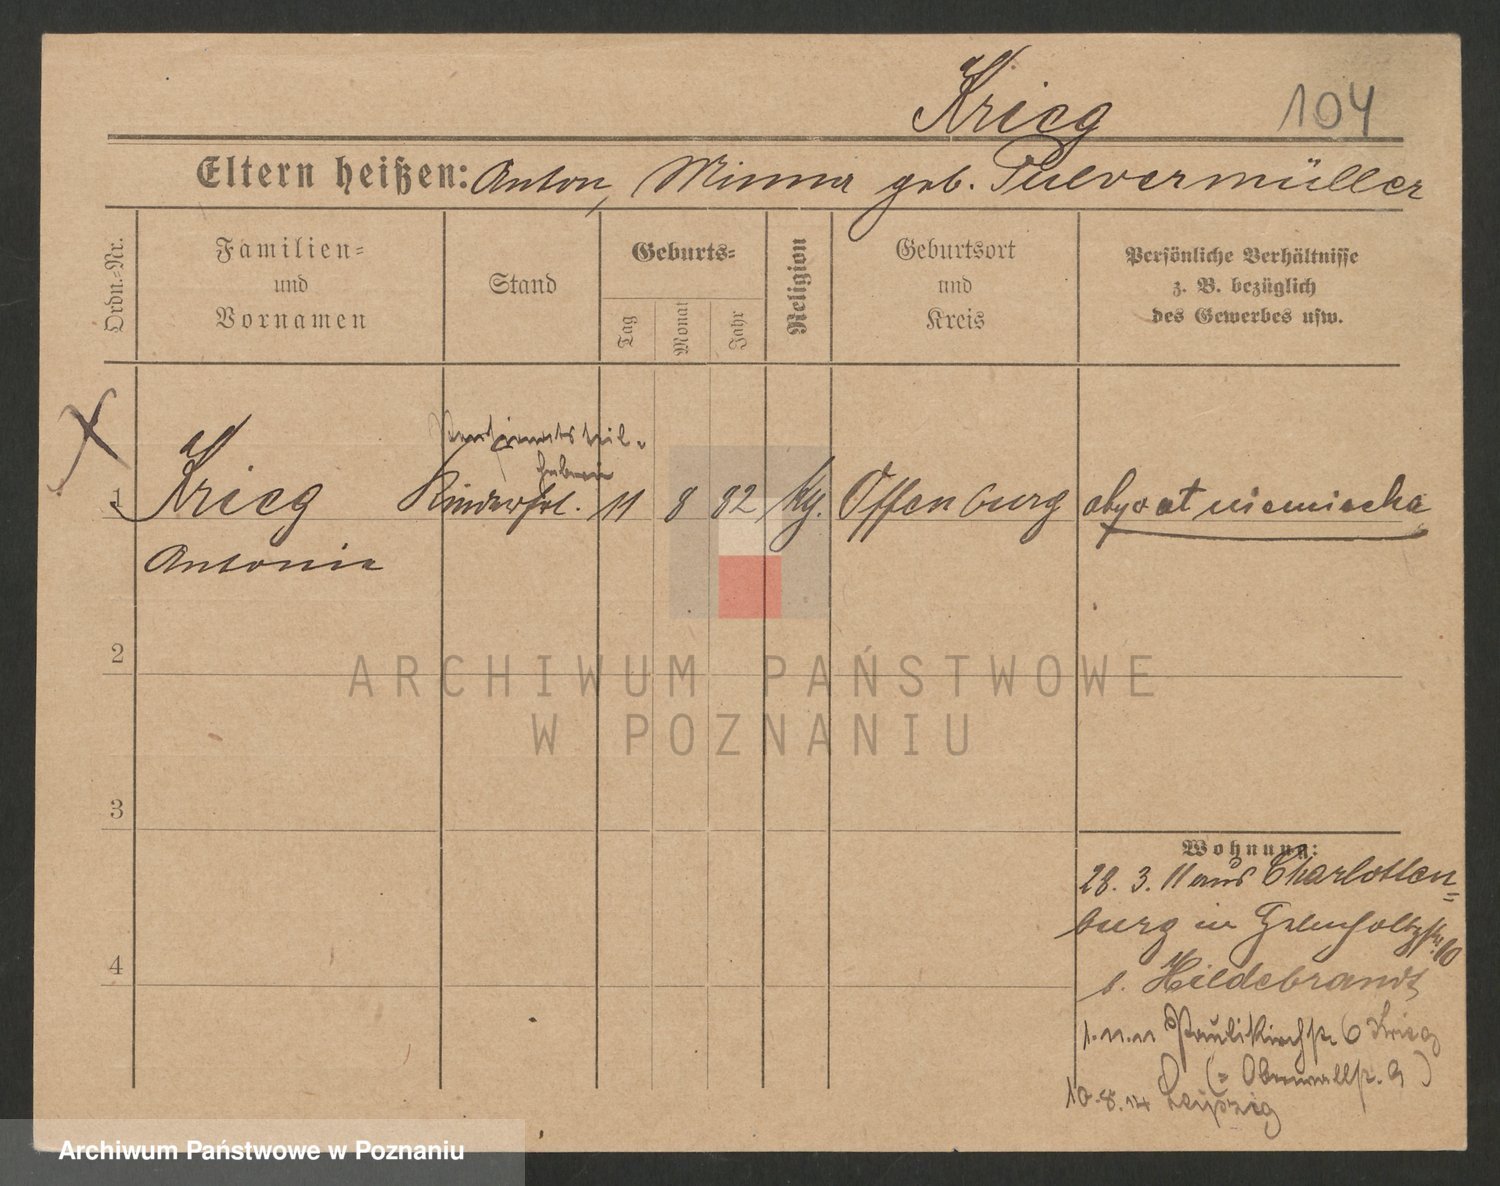 Krieg 104
Eltern heißen: Anton, Minna geb. Pulvermüller
Ordn.=Nr.
Familien=
und
Vornamen
Stand
Geburts=
Tag
Monat
Jahr
Religion
Geburtsort
und
Kreis
Persönliche Verhältnisse
z. B. bezüglich
des Gewerbes usw.
X
Pensionatsteil-
haberin
1 Krieg Kinderfrl. 11 8 82 Offenburg obywat niemiecka
Antonie
2
ARCHIWUM PAŃSTWOWE
W POZNANIU
3
Wohnung:
28. 3. 11 aus Charlotten=
burg in
4
b. Hildebrandt
1.11.11 Paulikirchstr. 6 Krieg
(= Oberwallstr. 9)
10.8.14 Leipzig
Archiwum Państwowe w Poznaniu